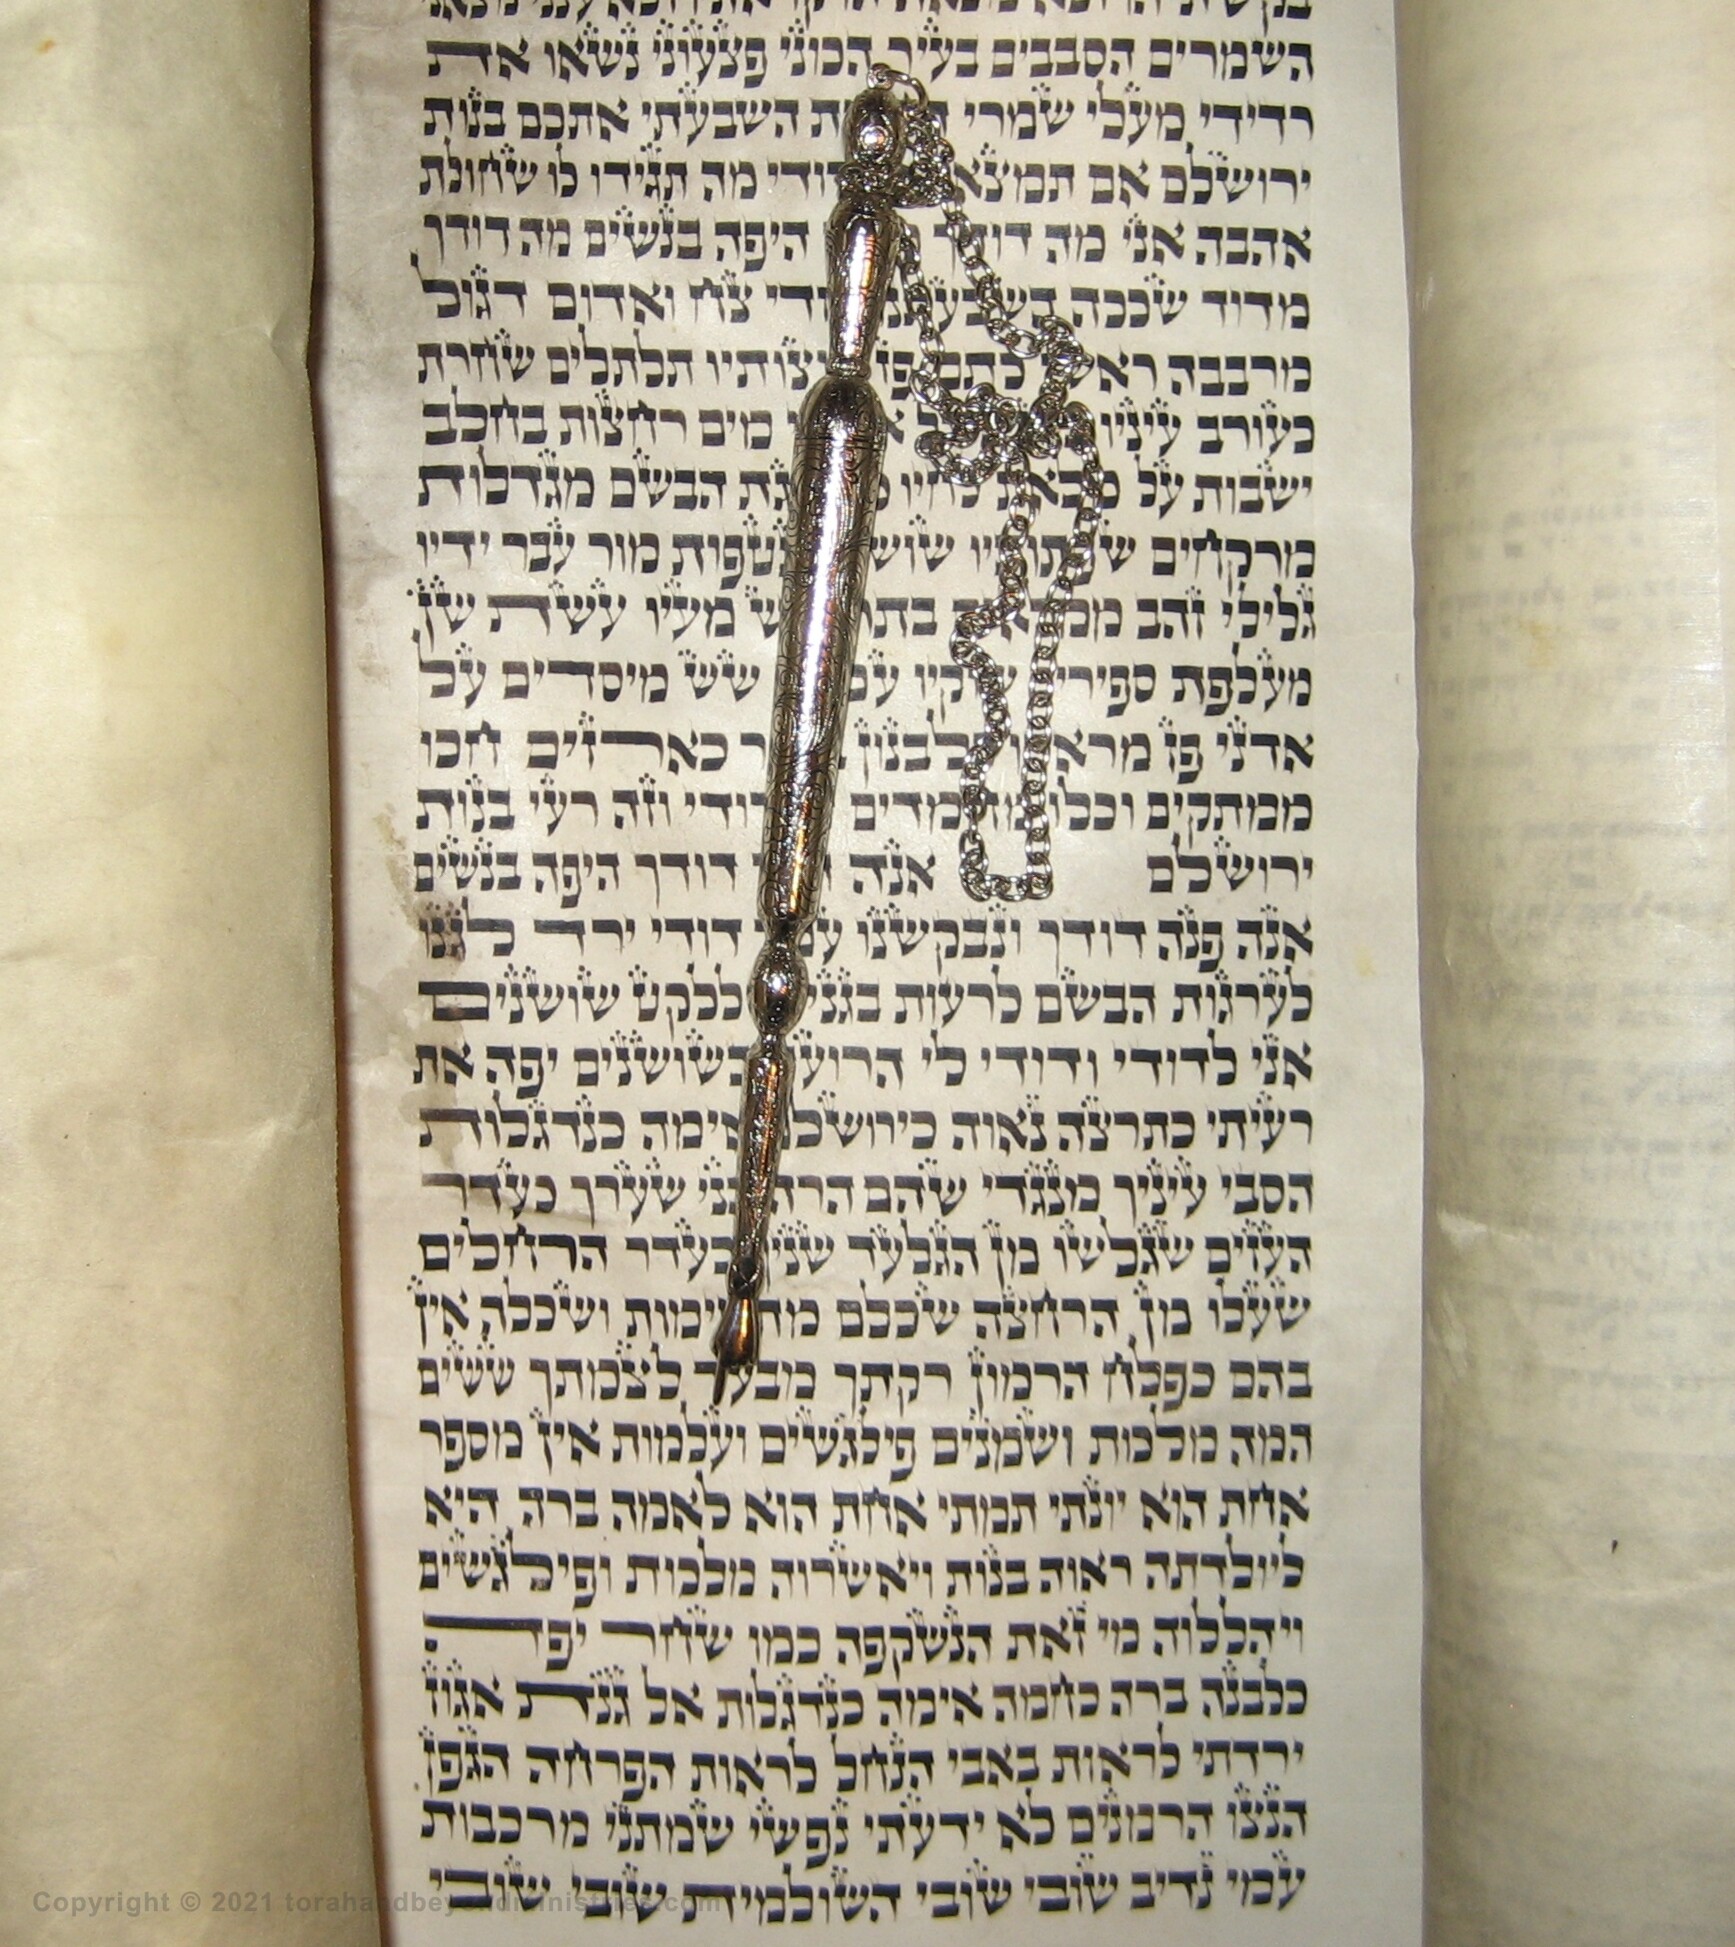 השמרים הסבבים בעיר הכוני פצעוני נשאו את
רדידי מעלי שמרי השבעתי אתכם בנות
ירושלם אם תמצא דודי מה תגידו לו שחולת
אהבה אני מה דודך היפה בנשים מה דודך
מדוד שככה השבעתנו דודי צח ואדום דגול
מרבבה ראשו כתם פז קוצותיו תלתלים שחרת
כעורב עיניו מים רחצות בחלב
ישבות על מלאת לחיו הבשם מגדלות
מרקחים שפתותיו שוש נטפות מור עבר ידיו
גלילי זהב ממלאים בתר מעיו עשת שן
מעלפת ספירים שוקיו עמ שש מיסדים על
אדני פז מראהו כלבנון כארזים חכו
ממתקים וכלו מחמדים דודי וזה רעי בנות
ירושלם אנה דודך היפה בנשים
אנה פנה דודך ונבקשנו עמך דודי ירד לגנו
לערגות הבשם לרעות בגנים וללקט שושנים
אני לדודי ודודי לי הרועה בשושנים יפה את
רעיתי כתרצה נאוה כירושלם אימה כנדגלות
הסבי עיניך מנגדי שהם הרהיבני שערך כעדר
העזים שגלשו מן הגלעד שניך כעדר הרחלים
שעלו מן הרחצה שכלם מתאימות ושכלה אין
בהם כפלח הרמון רקתך מבעד לצמתך ששים
המה מלכות ושמנים פילגשים ועלמות אין מספר
אחת הוא יונתי תמתי אחת הוא לאמה ברה היא
ליולדתה ראוה בנות ויאשרוה מלכות ופילגשים
ויהללוה מי זאת הנשקפה כמו שחר יפה
כלבנה ברה כחמה אימה כנדגלות אל גנת אגוז
ירדתי לראות באבי הנחל לראות הפרחה הגפן
הנצו הרמנים לא ידעתי נפשי שמתני מרכבות
עמי נדיב שובי שובי השולמית שובי שובי
Copyright © 2021 torahandbeyondministries.com